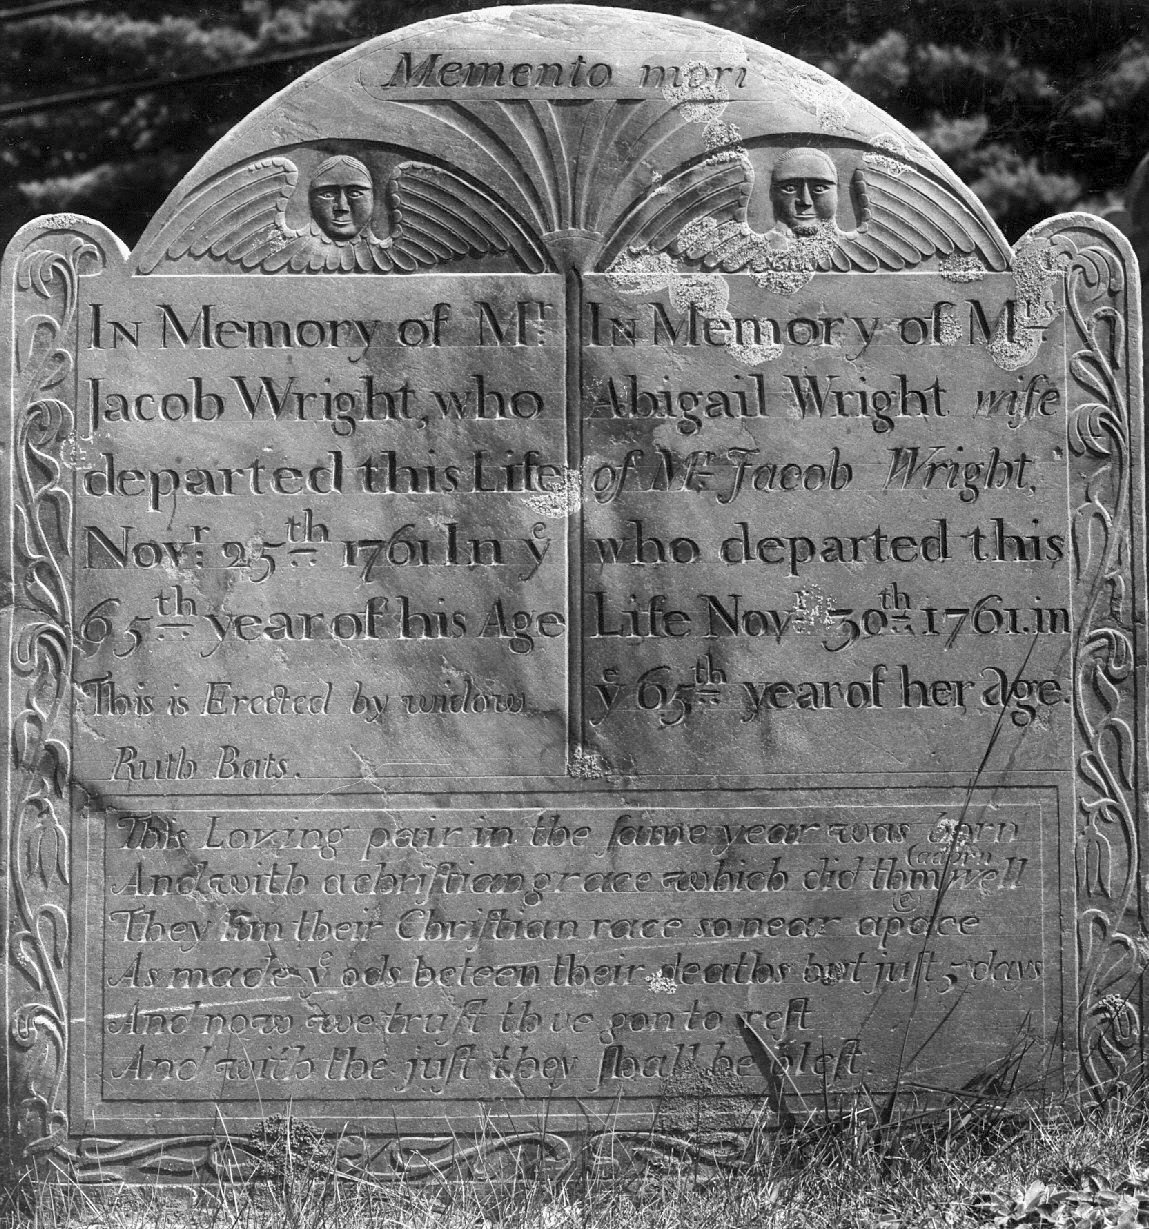 Memento mori
In Memory of Mr.
Jacob Wright, who
departed this Life
Novr. 25th. 1761 In ye
65th. year of his Age
This is Erected by widow
Ruth Bats.
In Memory of Mrs.
Abigail Wright wife
of Mr. Jacob Wright,
who departed this
Life Novr. 30th. 1761. in
ye 65th year of her age.
This Loving pair in the ſame year was born
And with a chriſtian grace which did them adorn well
They run their Chriſtian race so near apace
As made ye ods beteen their deaths but juſt 5 days
And now we truſt th ve gon to reſt
And with the juſt they ſhall be bleſt.